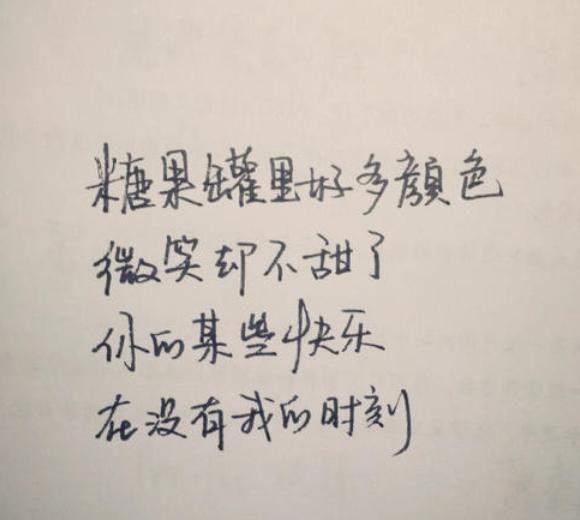 糖果罐里好多颜色
微笑却不甜了
你的某些快乐
在没有我的时刻